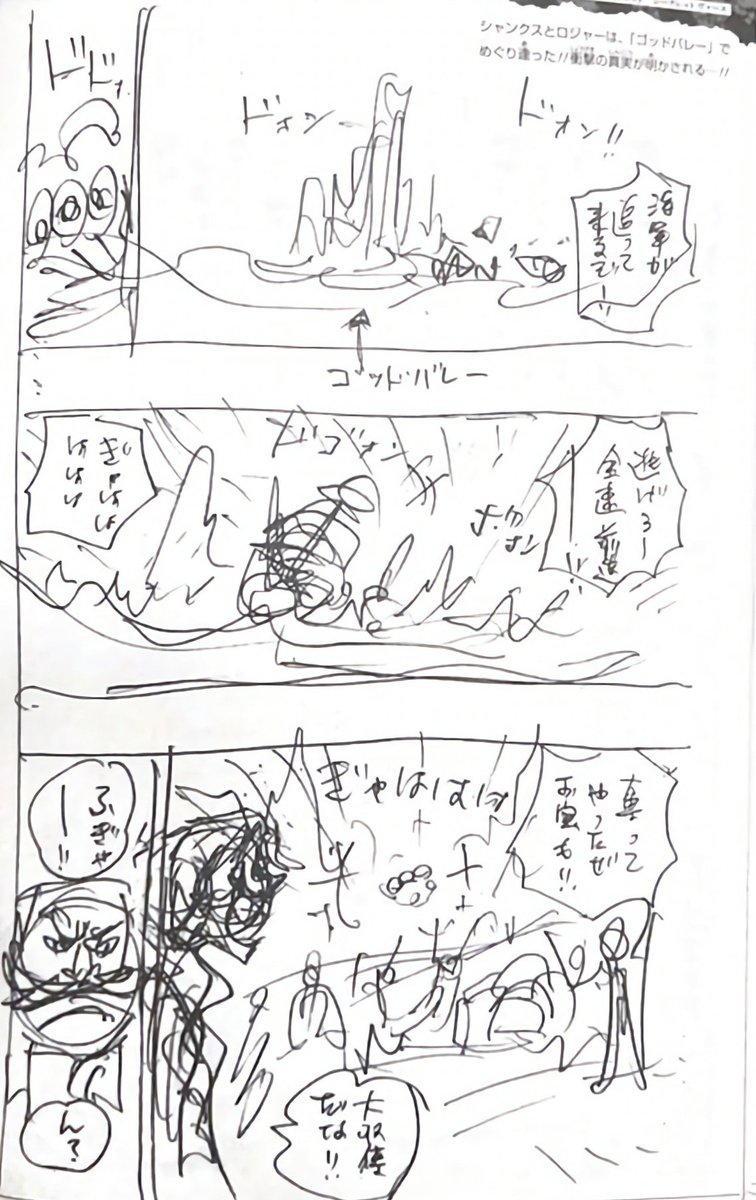 シャンクスとロジャーは、「ゴッドバレー」で
めぐり逢った!!衝撃の真実が明かされる…!!
ドォン!!
ドォン
ドドォ
海軍が
追って
来るぞー!!
ゴッド・バレー
逃げろー
全速前進
ドゴォン
ぎゃはは
ははは
ははは
奪って
やったぜ
お宝も!!
ぎゃはははは
大収穫
だな!!
ふぎゃ
ー!!
ん?